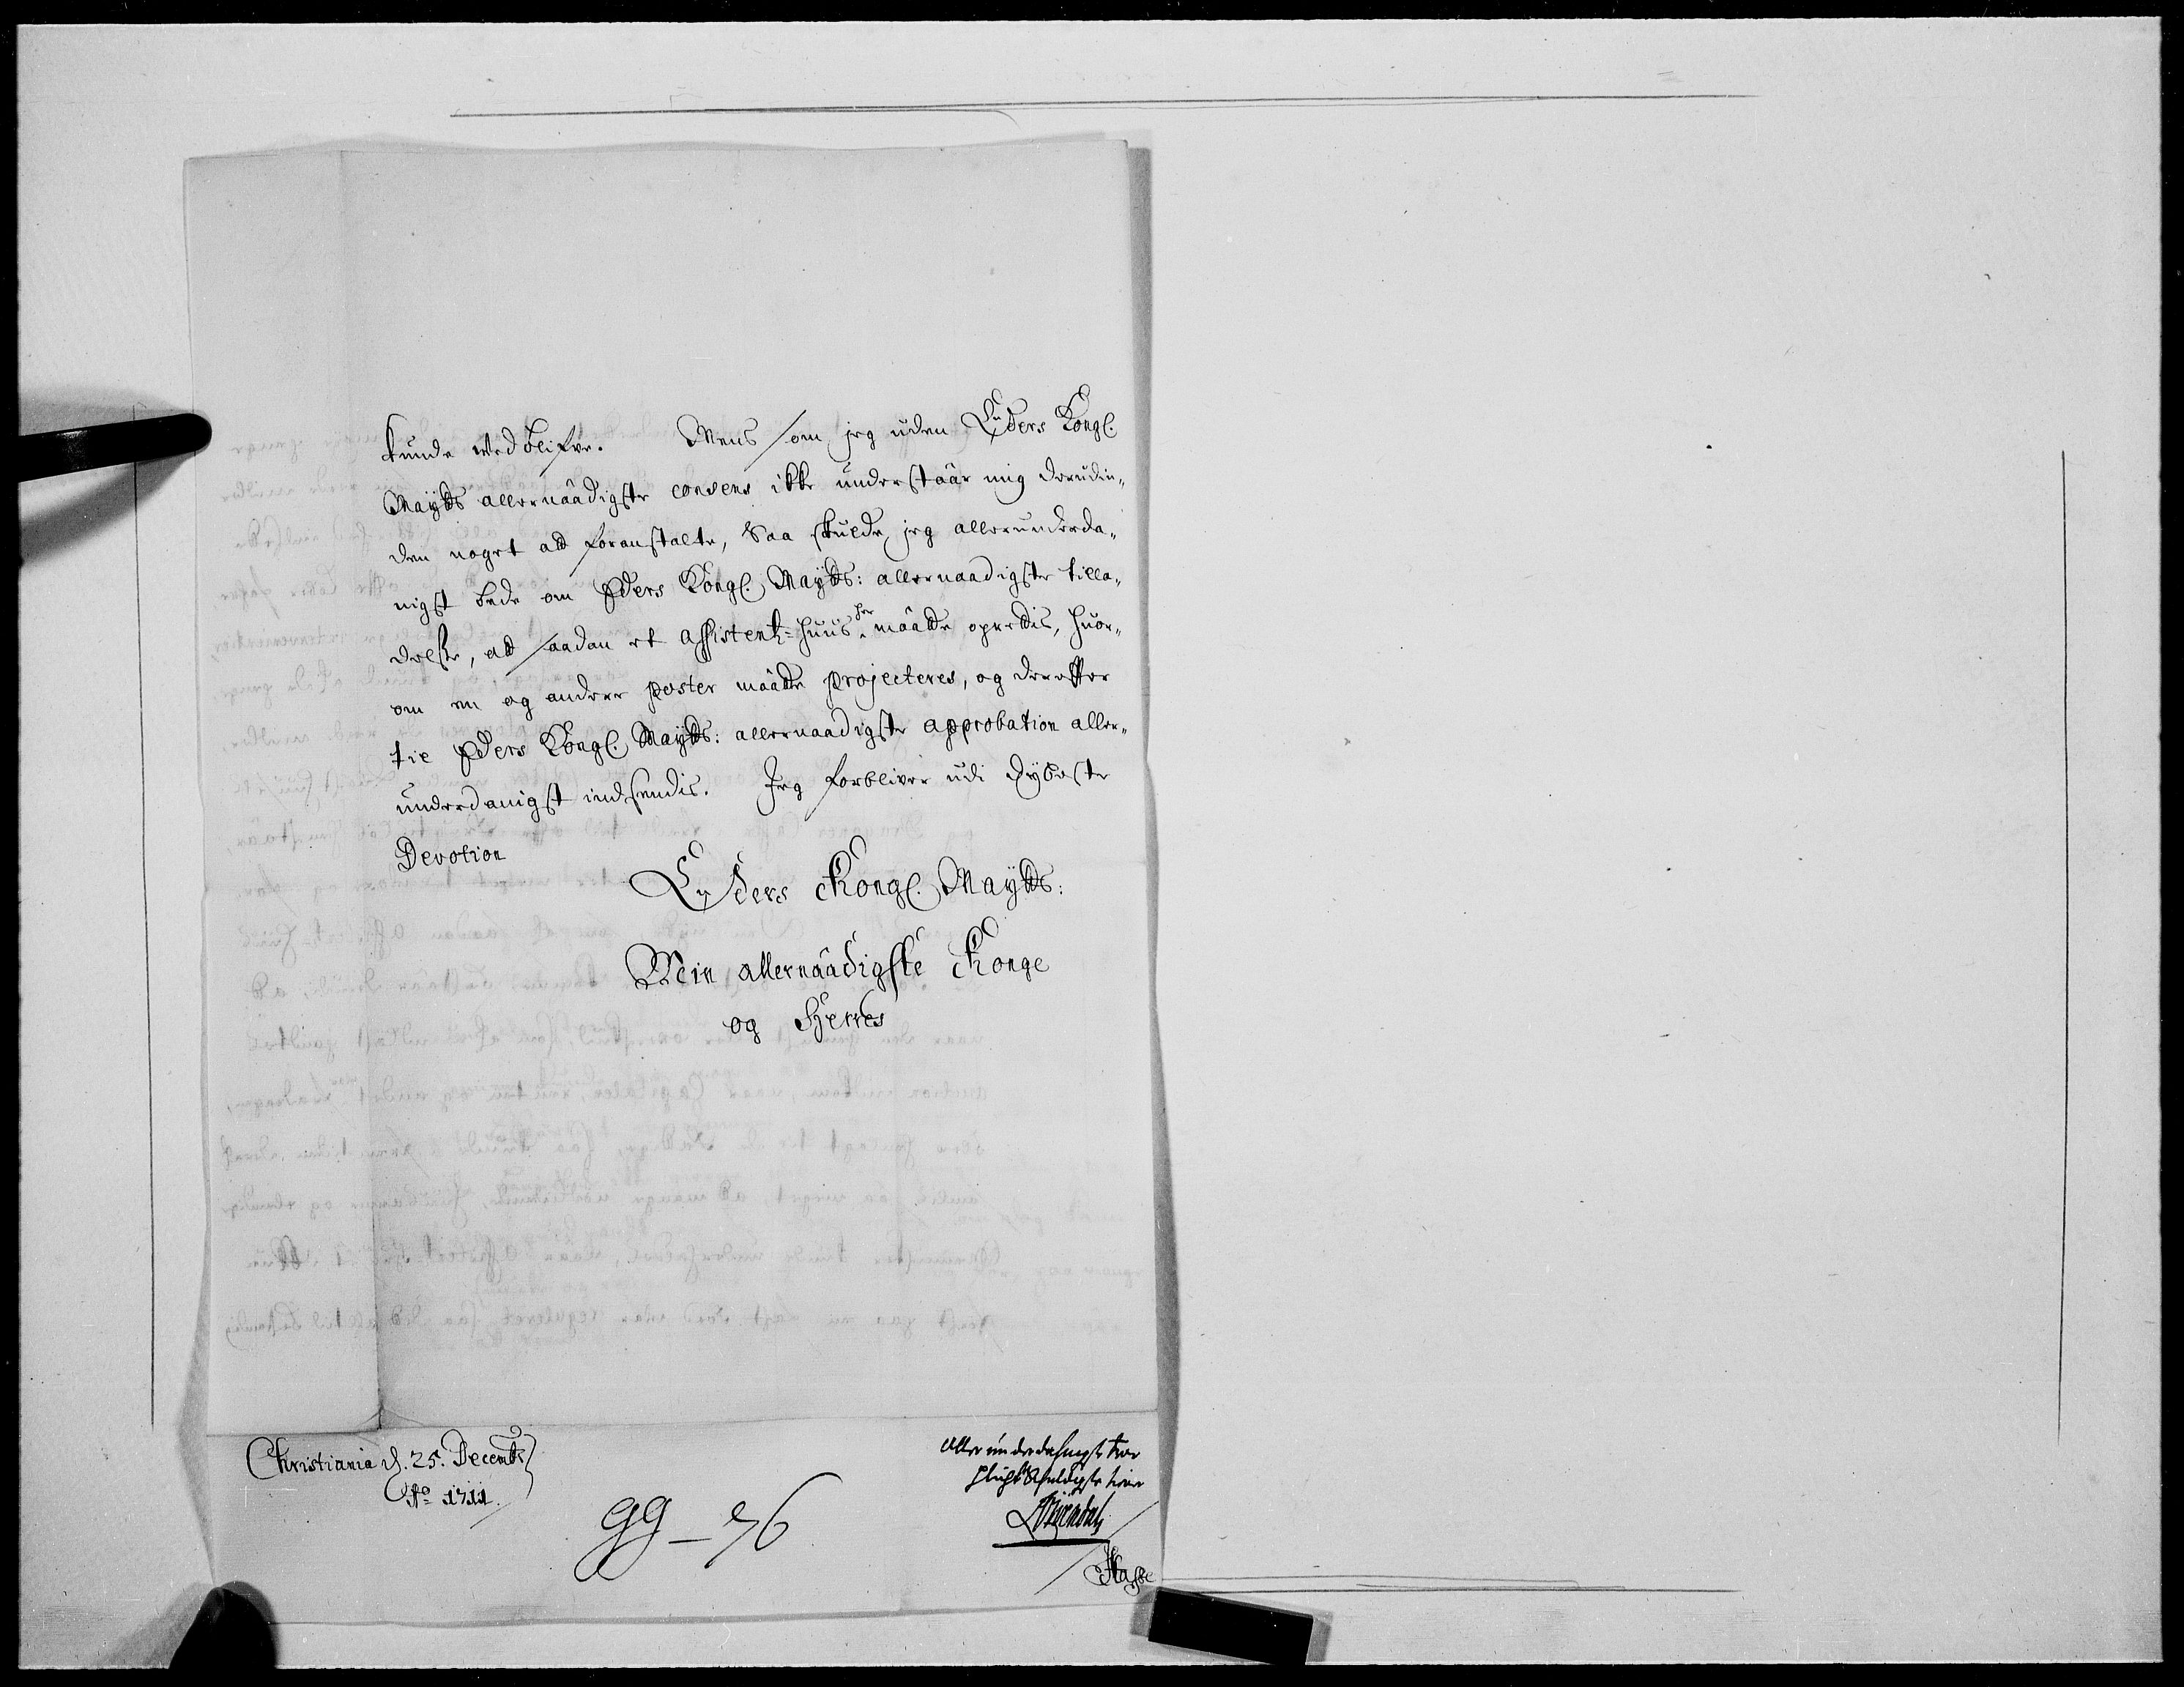 kunde wed blifve. Mens som jeg uden Eders Kongl.
Mayts allernaadigste consens ikke understaar mig derudin„
den noget att foranstalte, Saa skulde jeg allerunderda„
nigst bede om Eders Kongl. Mayts: allernaadigste tilla„
delse, att saadan et Assistentz=huus her maatte oprettis, huor„
om en og andere poster maatte projecteres, og derefter
til Eders Kongl. Mayts: allernaadigste approbation aller„
underdanigst indsendis. Jeg forbliver udi dybeste
Devotion
Eders Kongl. Mayts:
Mein allernaadigste Konge
og Herres
Christiania d. 25. Decembr
Ao 1711.
allerunderdanigste troe
pligtskyldigste tiener
Hasse
99-76